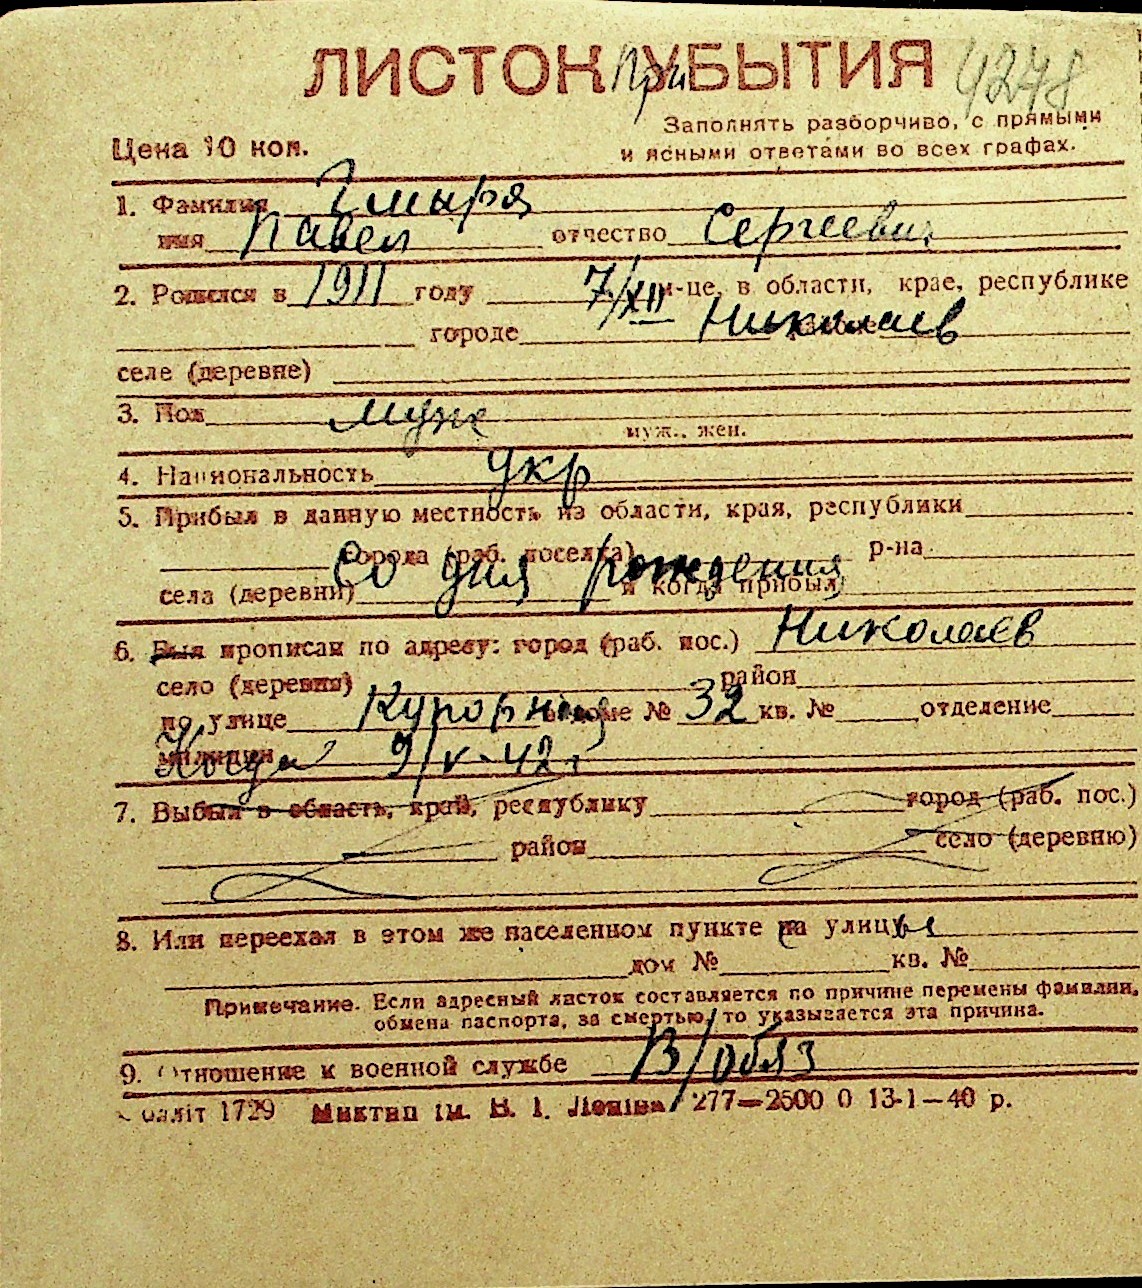 ЛИСТОК При УБЫТИЯ 4278
Заполнять разборчиво, с прямыми
Цена 10 коп.
и ясными ответами во всех графах.
1. Фамилия Гмыря
имя Павел отчество Сергеевич
2. Родился в 1911 году 7/XII м-це, в области, крае, республике
городе Николаев
селе (деревне)
3. Пол муж
муж., жен.
4. Национальность укр
5. Прибыл в данную местность из области, края, республики
города (раб. поселка) р-на
Со дня рождения
села (деревни) и когда прибыл
6. Был прописан по адресу: город (раб. пос.) Николаев
село (деревня) район
по улице в доме № 32 кв. № отделение
милиции Когда 9/V-42 г
7. Выбыл в область, край, республику город (раб. пос.)
район село (деревню)
8. Или переехал в этом же населенном пункте с улицы
дом № кв. №
Примечание. Если адресный листок составляется по причине перемены фамилии,
обмена паспорта, за смертью, то указывается эта причина.
9. Отношение к военной службе В/обяз
1729 Миктип ім. В. І. Леніна 277—2500 0 13-1—40 р.